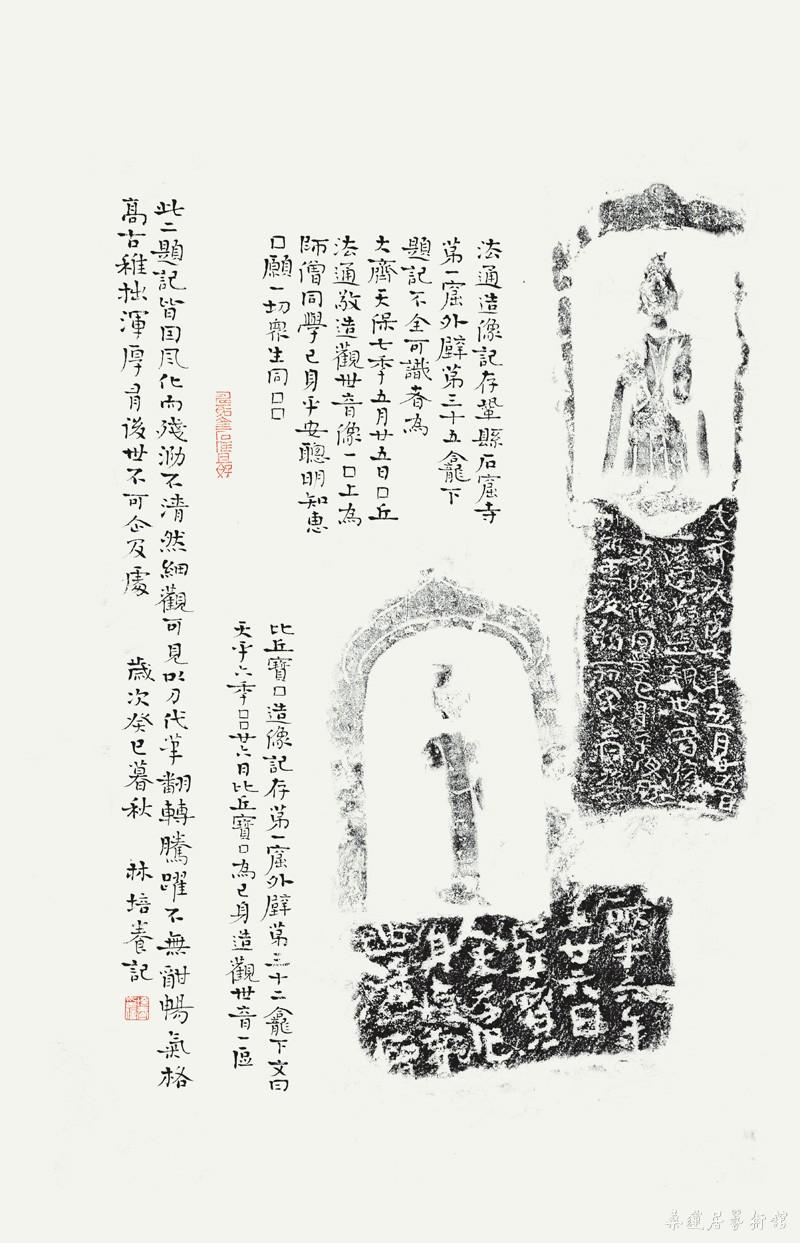 法通造像記存鞏縣石窟寺
第一窟外壁第三十五龕下
題記不全可識者為
大齊天保七年五月廿五日口丘
法通敬造觀世音像一口上為
師僧同學己身平安聰明知惠
口願一切眾生同口口
比丘寶口造像記存第一窟外壁第三十二龕下文曰
天平六年口口廿六日比丘寶口為己身造觀世音一區
此二題記皆因風化而殘泐不清然細觀可見以刀代筆翻轉騰躍不無酣暢氣格
高古稚拙渾厚有後世不可企及處
歲次癸巳暮秋
林培養記
大齊天保七年五月廿五日
六年
廿六日
桑蓮居藝術館